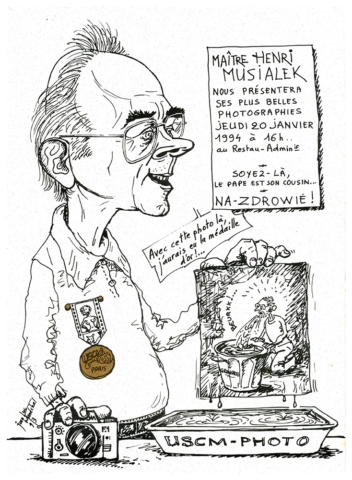 MAÎTRE HENRI
MUSIALEK
NOUS PRÉSENTERA
SES PLUS BELLES
PHOTOGRAPHIES
JEUDI 20 JANVIER
1994 À 16h..
au Restau-Admin
SOYEZ-LÀ,
LE PAPE EST SON COUSIN...
NA-ZDROWIÉ !
Avec cette photo là,
j'aurais eu la médaille
d'or!...
USCM
PARIS
USCM-PHOTO